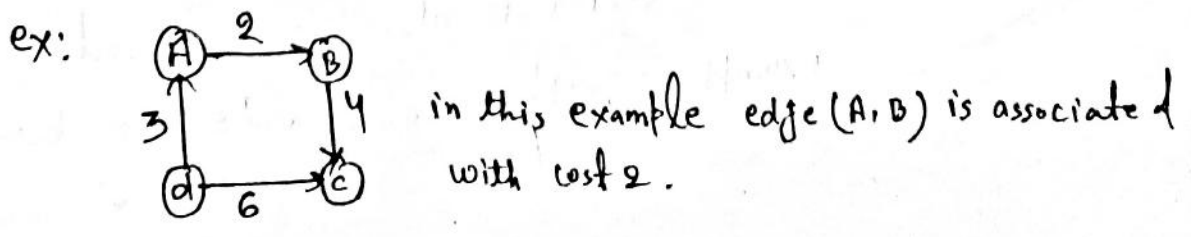 ex:
A 2 B
3 4 in this example edge (A, B) is associated
with cost 2.
d 6 C